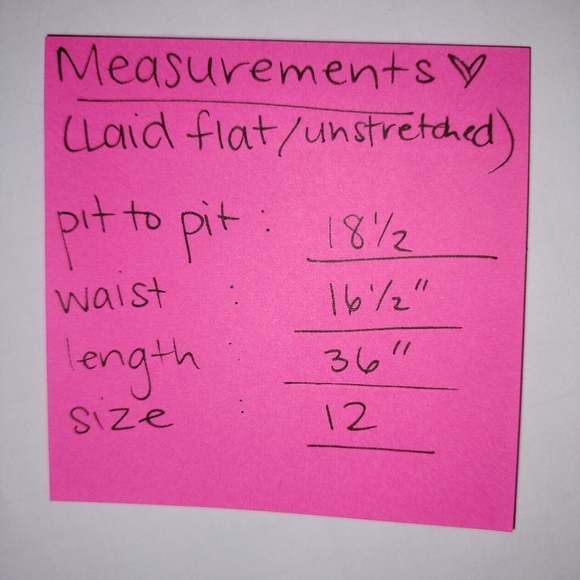 Measurements ♡
(Laid flat/unstretched)
pit to pit : 18 1/2
waist : 16 1/2"
length : 36"
size : 12